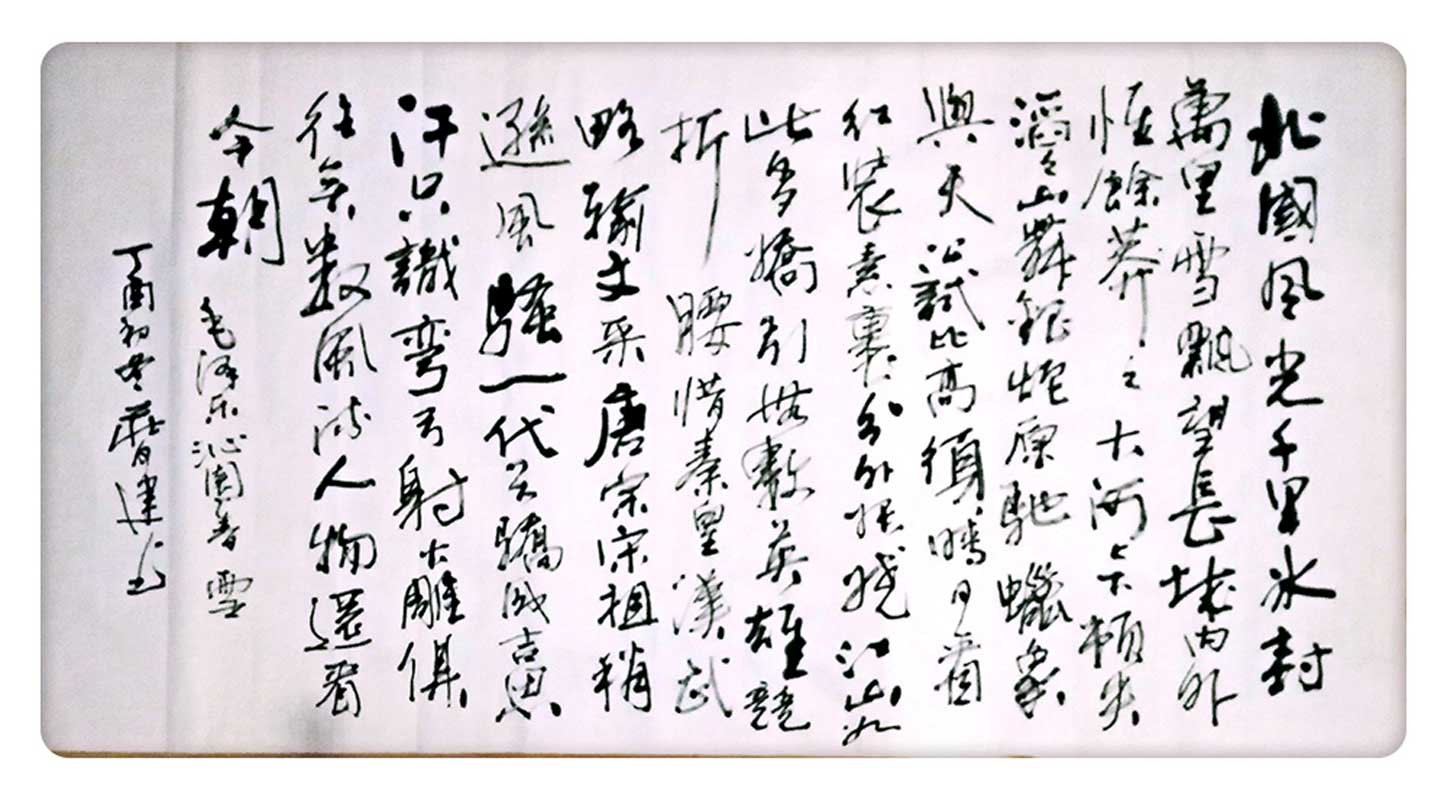 北國风光千里冰封
萬里雪飄望長城内外
惟餘莽々大河上下頓失
滔々山舞銀蛇原馳蠟象
與天公試比高須晴日看
红装素裹分外妖娆江山如
此多嬌引無數英雄競
折腰惜秦皇漢武
略輸文采唐宗宋祖稍
遜風騷一代天驕成吉思
汗只識弯弓射大雕俱
往矣數風流人物還看
今朝 毛泽东沁園春雪
丁酉初冬 建书